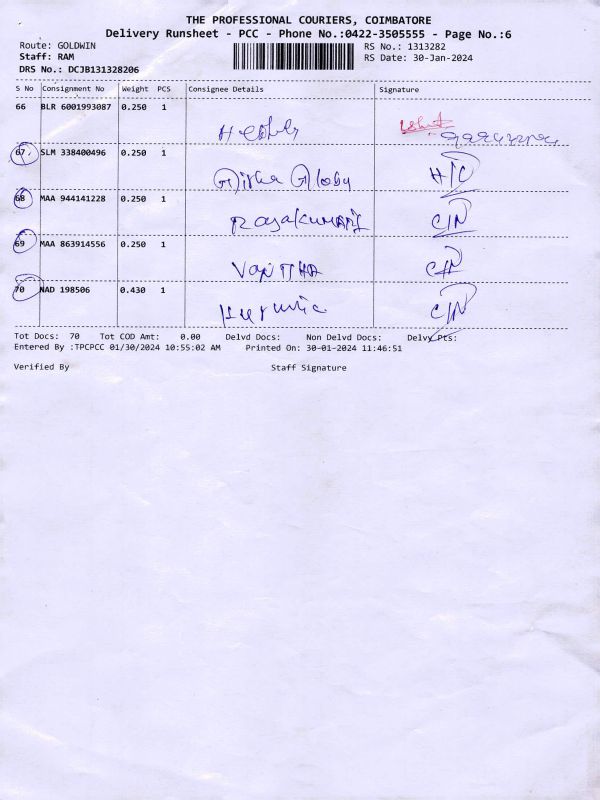 THE PROFESSIONAL COURIERS, COIMBATORE
Delivery Runsheet - PCC - Phone No.:0422-3505555 - Page No.:6
Route: GOLDWIN RS No.: 1313282
Staff: RAM RS Date: 30-Jan-2024
DRS No.: DCJB131328206
S No Consignment No Weight PCS Consignee Details Signature
66 BLR 6001993087 0.250 1
67 SLM 338400496 0.250 1
68 MAA 944141228 0.250 1
Rajakumari
69 MAA 863914556 0.250 1
VANITHA
70 NAD 198506 0.430 1
Tot Docs: 70 Tot COD Amt: 0.00 Delvd Docs: Non Delvd Docs: Delvy Pts:
Entered By :TPCPCC 01/30/2024 10:55:02 AM Printed On: 30-01-2024 11:46:51
Verified By Staff Signature